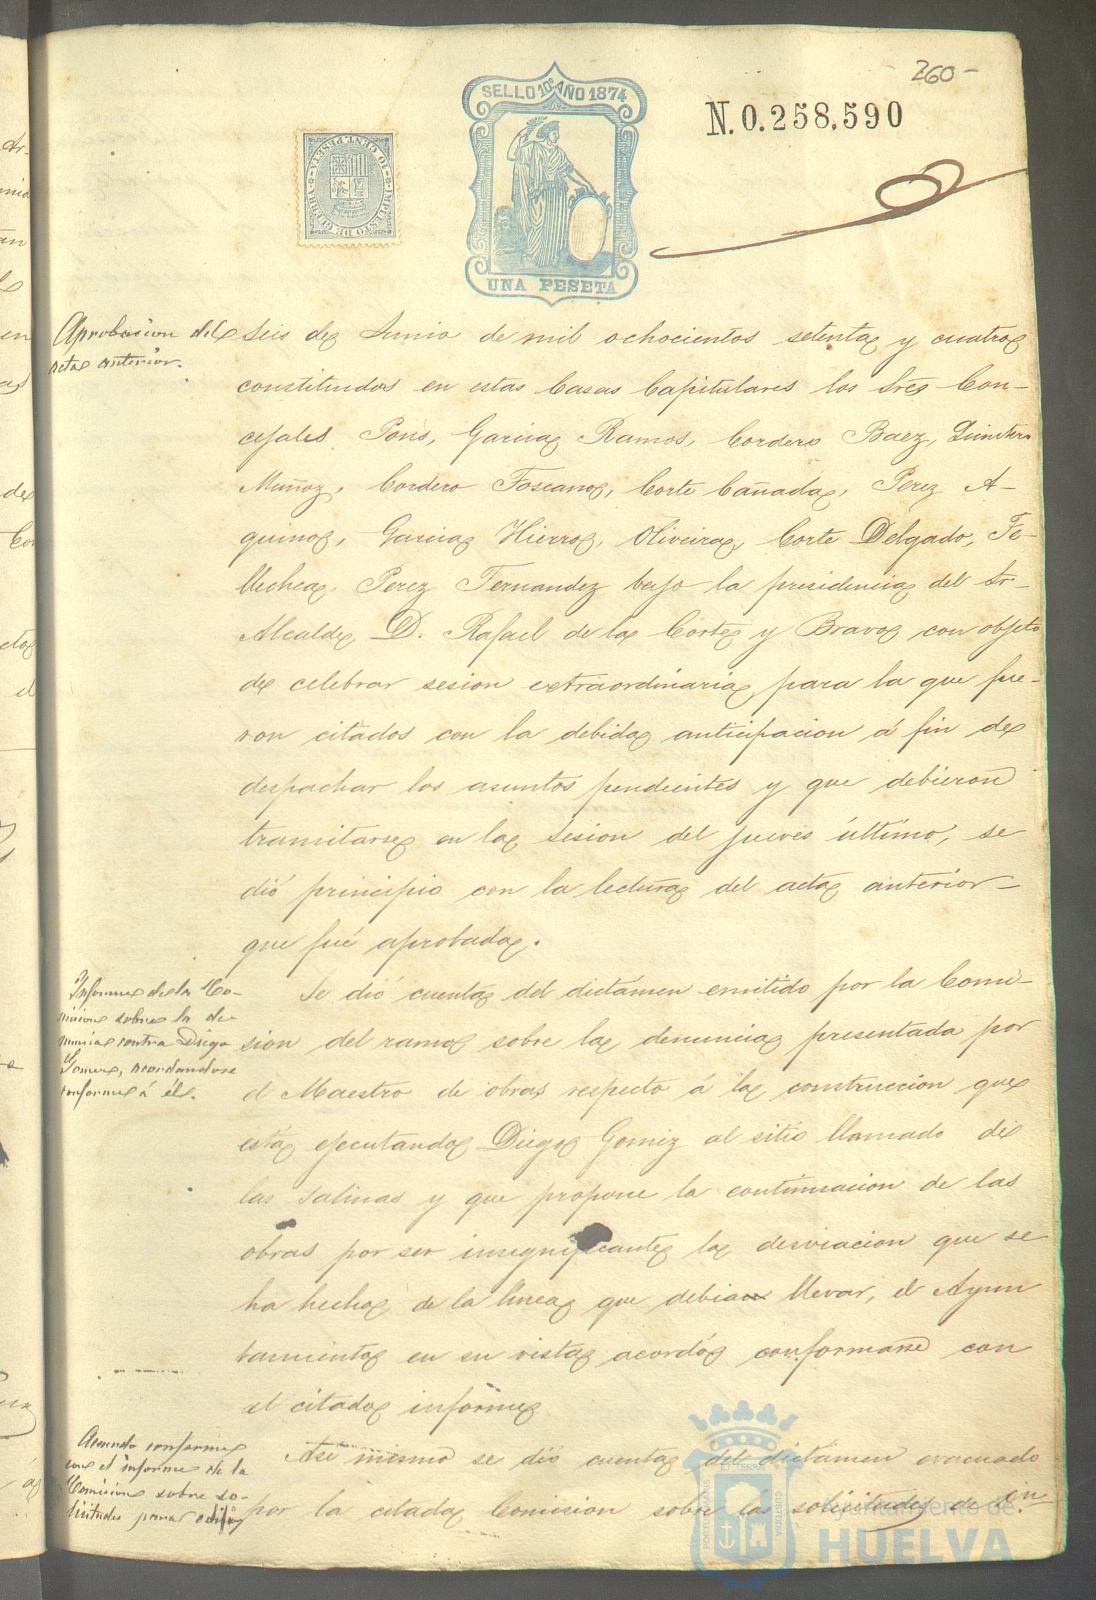 260-
SELLO 10º AÑO 1874
N. 0.258,590
IMPUESTO DE GUERRA
10 CENT PESETA
UNA PESETA
Aprobacion del
acta anterior.
Seis de Junio de mil ochocientos setenta y cuatro
constituidos en estas Casas Capitulares los Sres Con-
cejales Pons, Garcia Ramos, Cordero Baez, Quintero
Muñoz, Cordero Toscano, Corte Cañada, Perez A-
quino, Garcia Hierro, Oliveira, Corte Delgado, Te-
llechea, Perez Fernandez bajo la presidencia del Sr
Alcalde D. Rafael de la Corte y Bravo con objeto
de celebrar sesion extraordinaria para la que fue-
ron citados con la debida anticipacion á fin de
despachar los asuntos pendientes y que debieron
tramitarse en la sesion del jueves último, se
dió principio con la lectura del acta anterior
que fué aprobada.
Informe de la Co-
mision sobre la de-
nuncia contra Diego
Gomez, acordandose
conforme á él.
Se dió cuenta del dictámen emitido por la Comi-
sion del ramo sobre la denuncia presentada por
el Maestro de obras respecto á la construccion que
está ejecutando Diego Gomez al sitio llamado de
las Salinas y que propone la continuacion de las
obras por ser insignificante la desviacion que se
ha hecho de la línea que debia llevar, el Ayun
tamiento en su vista acordó conformarse con
el citado informe
Acuerdo conforme
con el informe de la
Comision sobre so-
licitudes para edific
Asi mismo se dió cuenta del dictámen evacuado
por la citada Comision sobre las solicitudes de
Ayuntamiento de
HUELVA